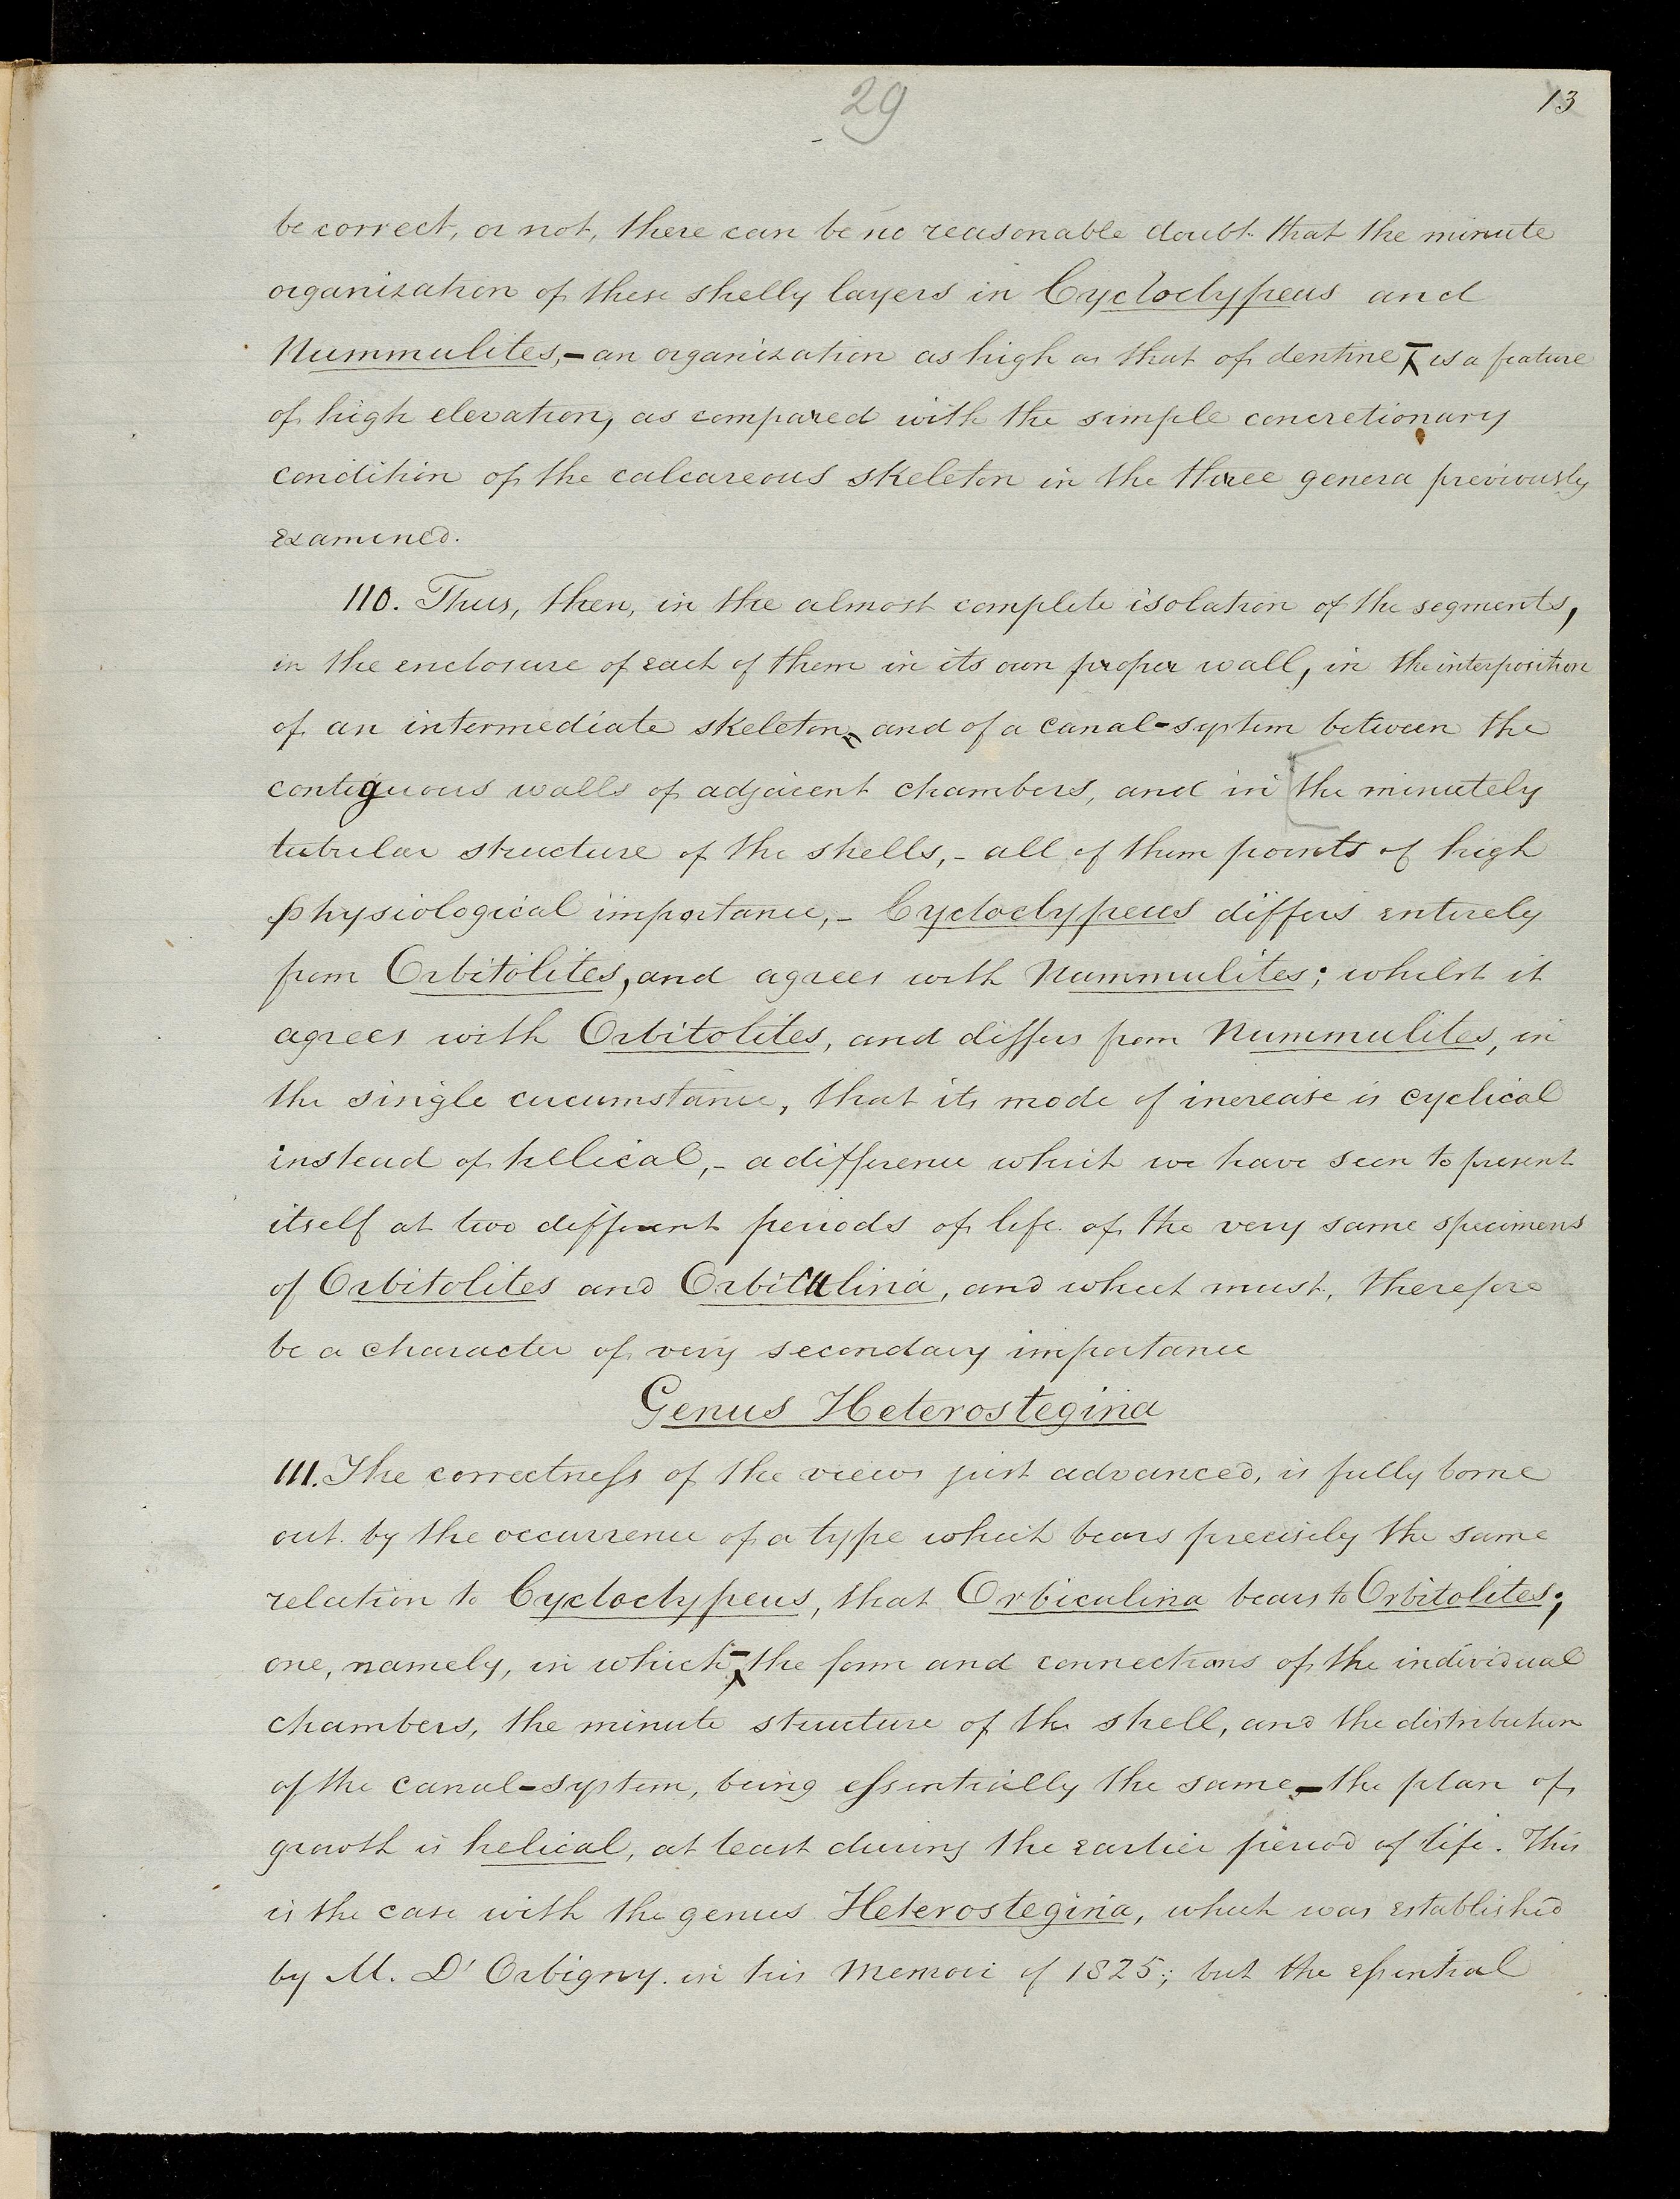 29
13
be correct, or not, there can be no reasonable doubt that the minute
organization of these shelly layers in Cycloclypeus and
Nummulites,- an organization as high as that of dentine - is a feature
of high elevation, as compared with the simple concretionary
condition of the calcareous skeleton in the three genera previously
examined.
110. Thus, then, in the almost complete isolation of the segments,
in the enclosure of each of them in its own proper wall, in the interposition
of an intermediate skeleton, and of a canal-system between the
contiguous walls of adjacent chambers, and in [the minutely
tubular structure of the shells,- all of them points of high
physiological importance,- Cycloclypeus differs entirely
from Orbitolites, and agrees with Nummulites; whilst it
agrees with Orbitolites, and differs from Nummulites, in
the single circumstance, that its mode of increase is cyclical
instead of helical,- a difference which we have seen to present
itself at two different periods of life of the very same specimens
of Orbitolites and Orbiculina, and which must, therefore
be a character of very secondary importance
Genus Heterostegina
111. The correctness of the views just advanced, is fully borne
out by the occurrence of a type which bears precisely the same
relation to Cycloclypeus, that Orbiculina bears to Orbitolites;
one, namely, in which - the form and connections of the individual
chambers, the minute structure of the shell, and the distribution
of the canal-system, being essentially the same,- the plan of
growth is helical, at least during the earlier period of life. This
is the case with the genus Heterostegina, which was established
by M. D'Orbigny in his Memoir of 1825; but the essential